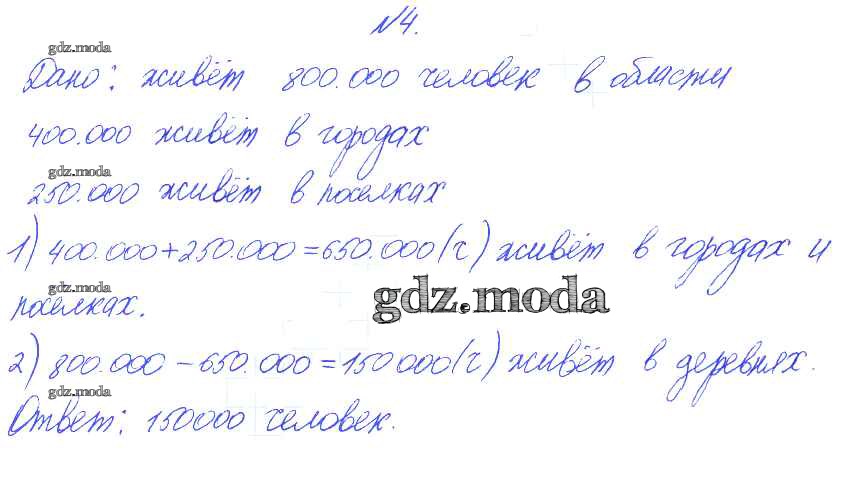 №4.
gdz.moda
Дано: живёт 800.000 человек в области
400.000 живёт в городах
gdz.moda
250.000 живёт в поселках
1) 400.000+250.000=650.000(ч) живёт в городах и
gdz.moda
gdz.moda
поселках.
2) 800.000-650.000=150000(ч) живёт в деревнях.
gdz.moda
Ответ: 150000 человек.